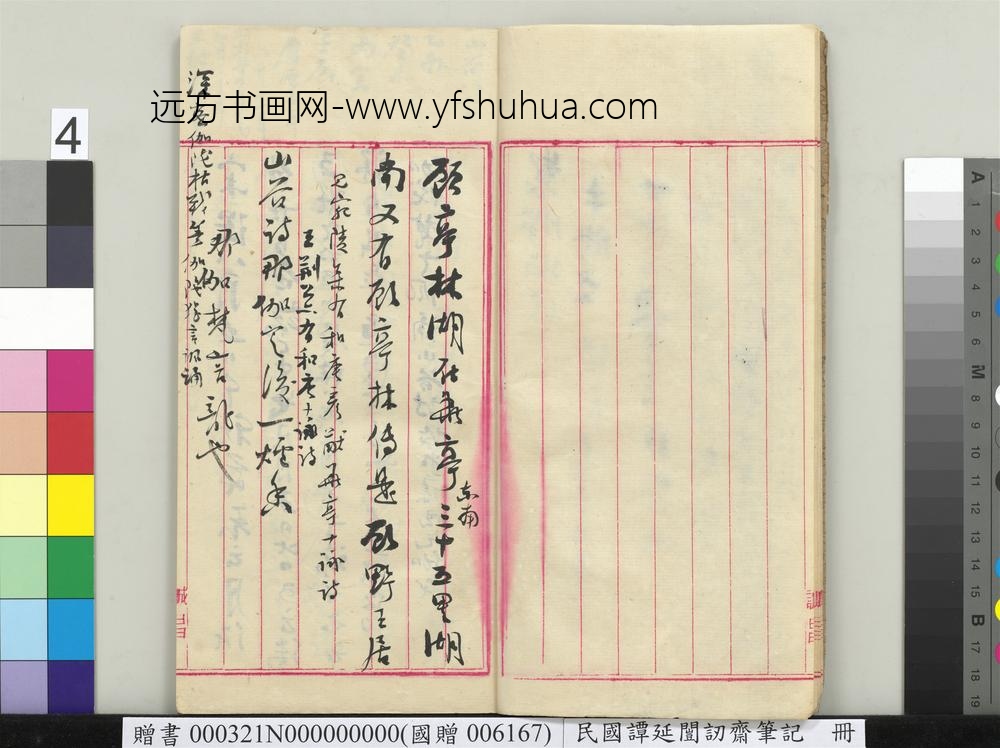 远方书画网-www.yfshuhua.com
4
顧亭林湖在華亭東南三十五里湖
南又有顧亭林傳是顧野王居
見宛陵集有和唐彥猷華亭十詠詩
王荊公有和唐十詠詩
山谷詩那伽定後一爐香
那伽梵言龍也
誠自
誠自
A
1
2
3
4
5
6
M
8
9
10
11
12
13
14
15
B
17
18
19
贈書 000321N000000000(國贈 006167) 民國譚延闓訒齋筆記 冊